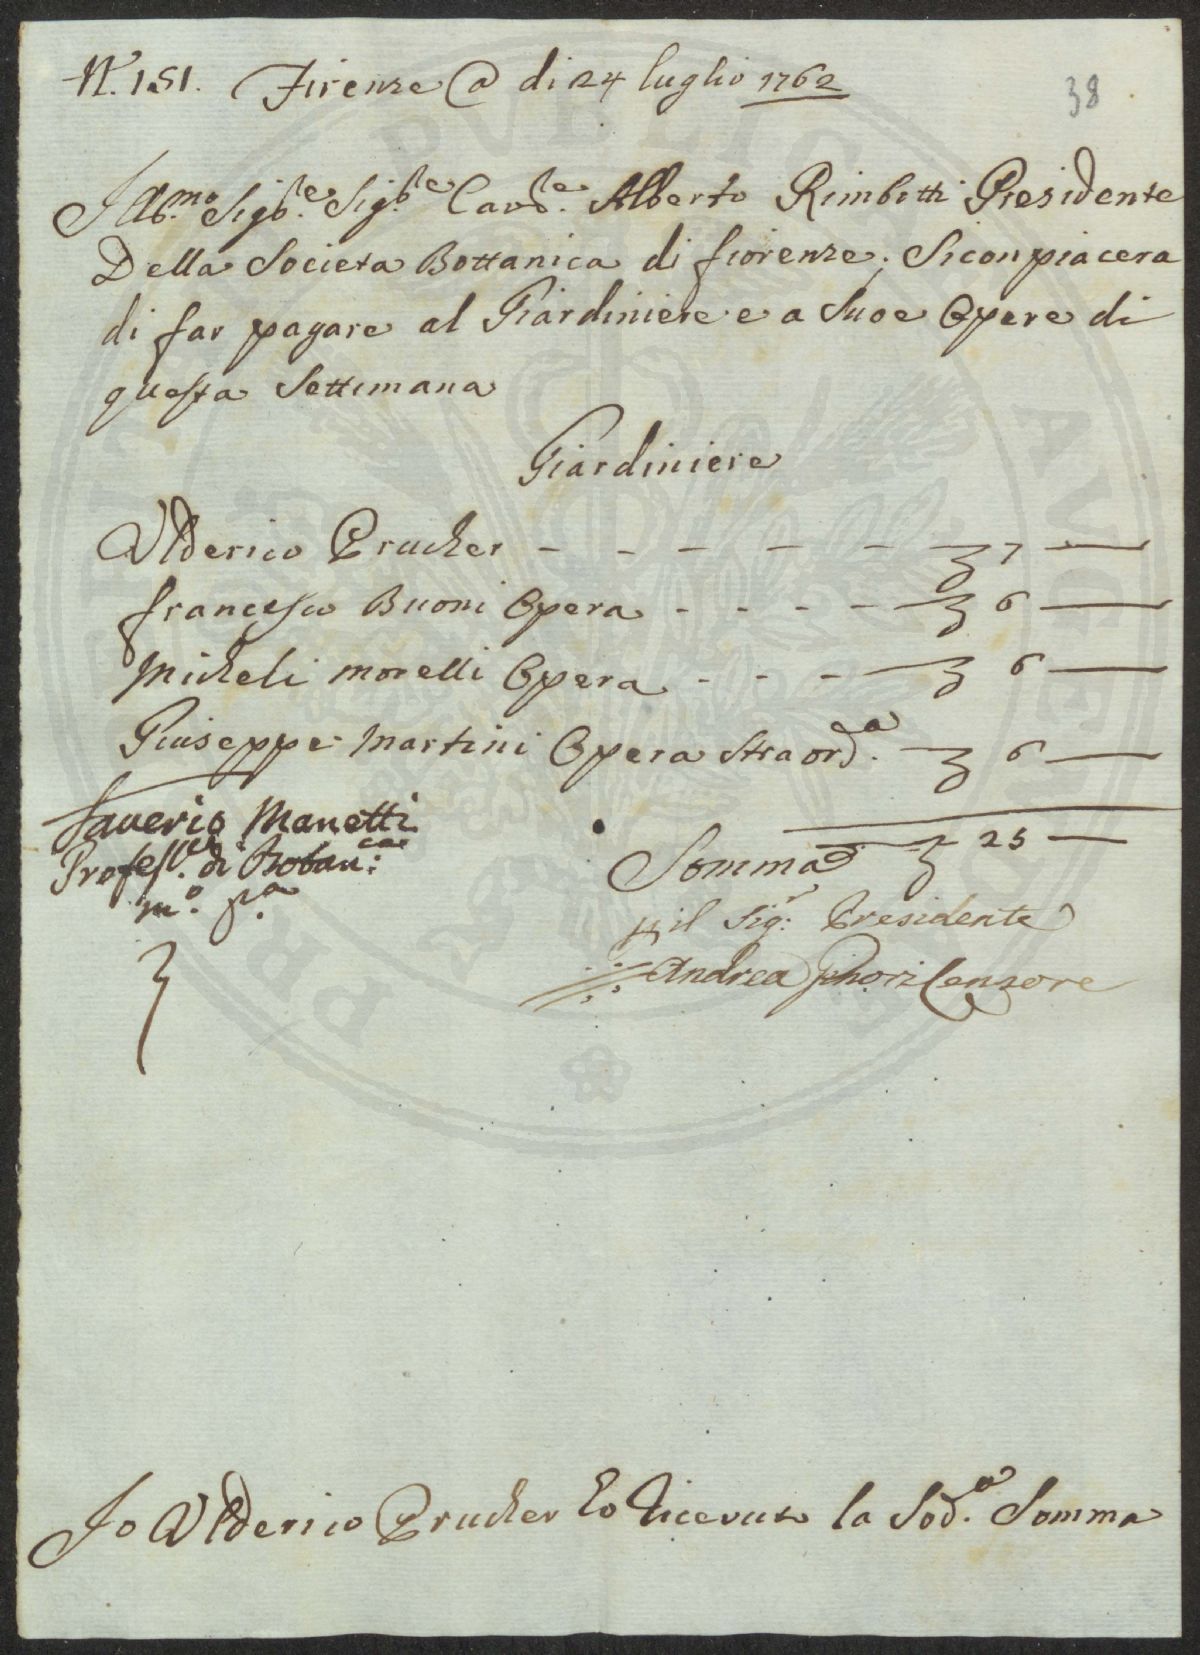 N.° 151. Firenze @ di 24 luglio 1762
38
Ill.mo Sig.re Sig.re Cav.re Alberto Rimbotti Presidente
Della Societa Bottanica di fiorenze; Si conpiacera
di far pagare al Giardiniere e a Suoe Opere di
questa Settimana
Giardiniere
Ulderico Prucher - - - - - 7 —
francesco Buoni Opera - - - - 6 —
Micheli morelli Opera - - - 6 —
Giuseppe Martini Opera Straord.a 6 —
Saverio Manetti
Profess.re di Botan.ca
m.o p.a
Somma 25 —
il Sig.r Presidente
Andrea Ginori Censore
Io Ulderico Prucher ho Riceuuto la Sod.a Somma
PVBLICAE